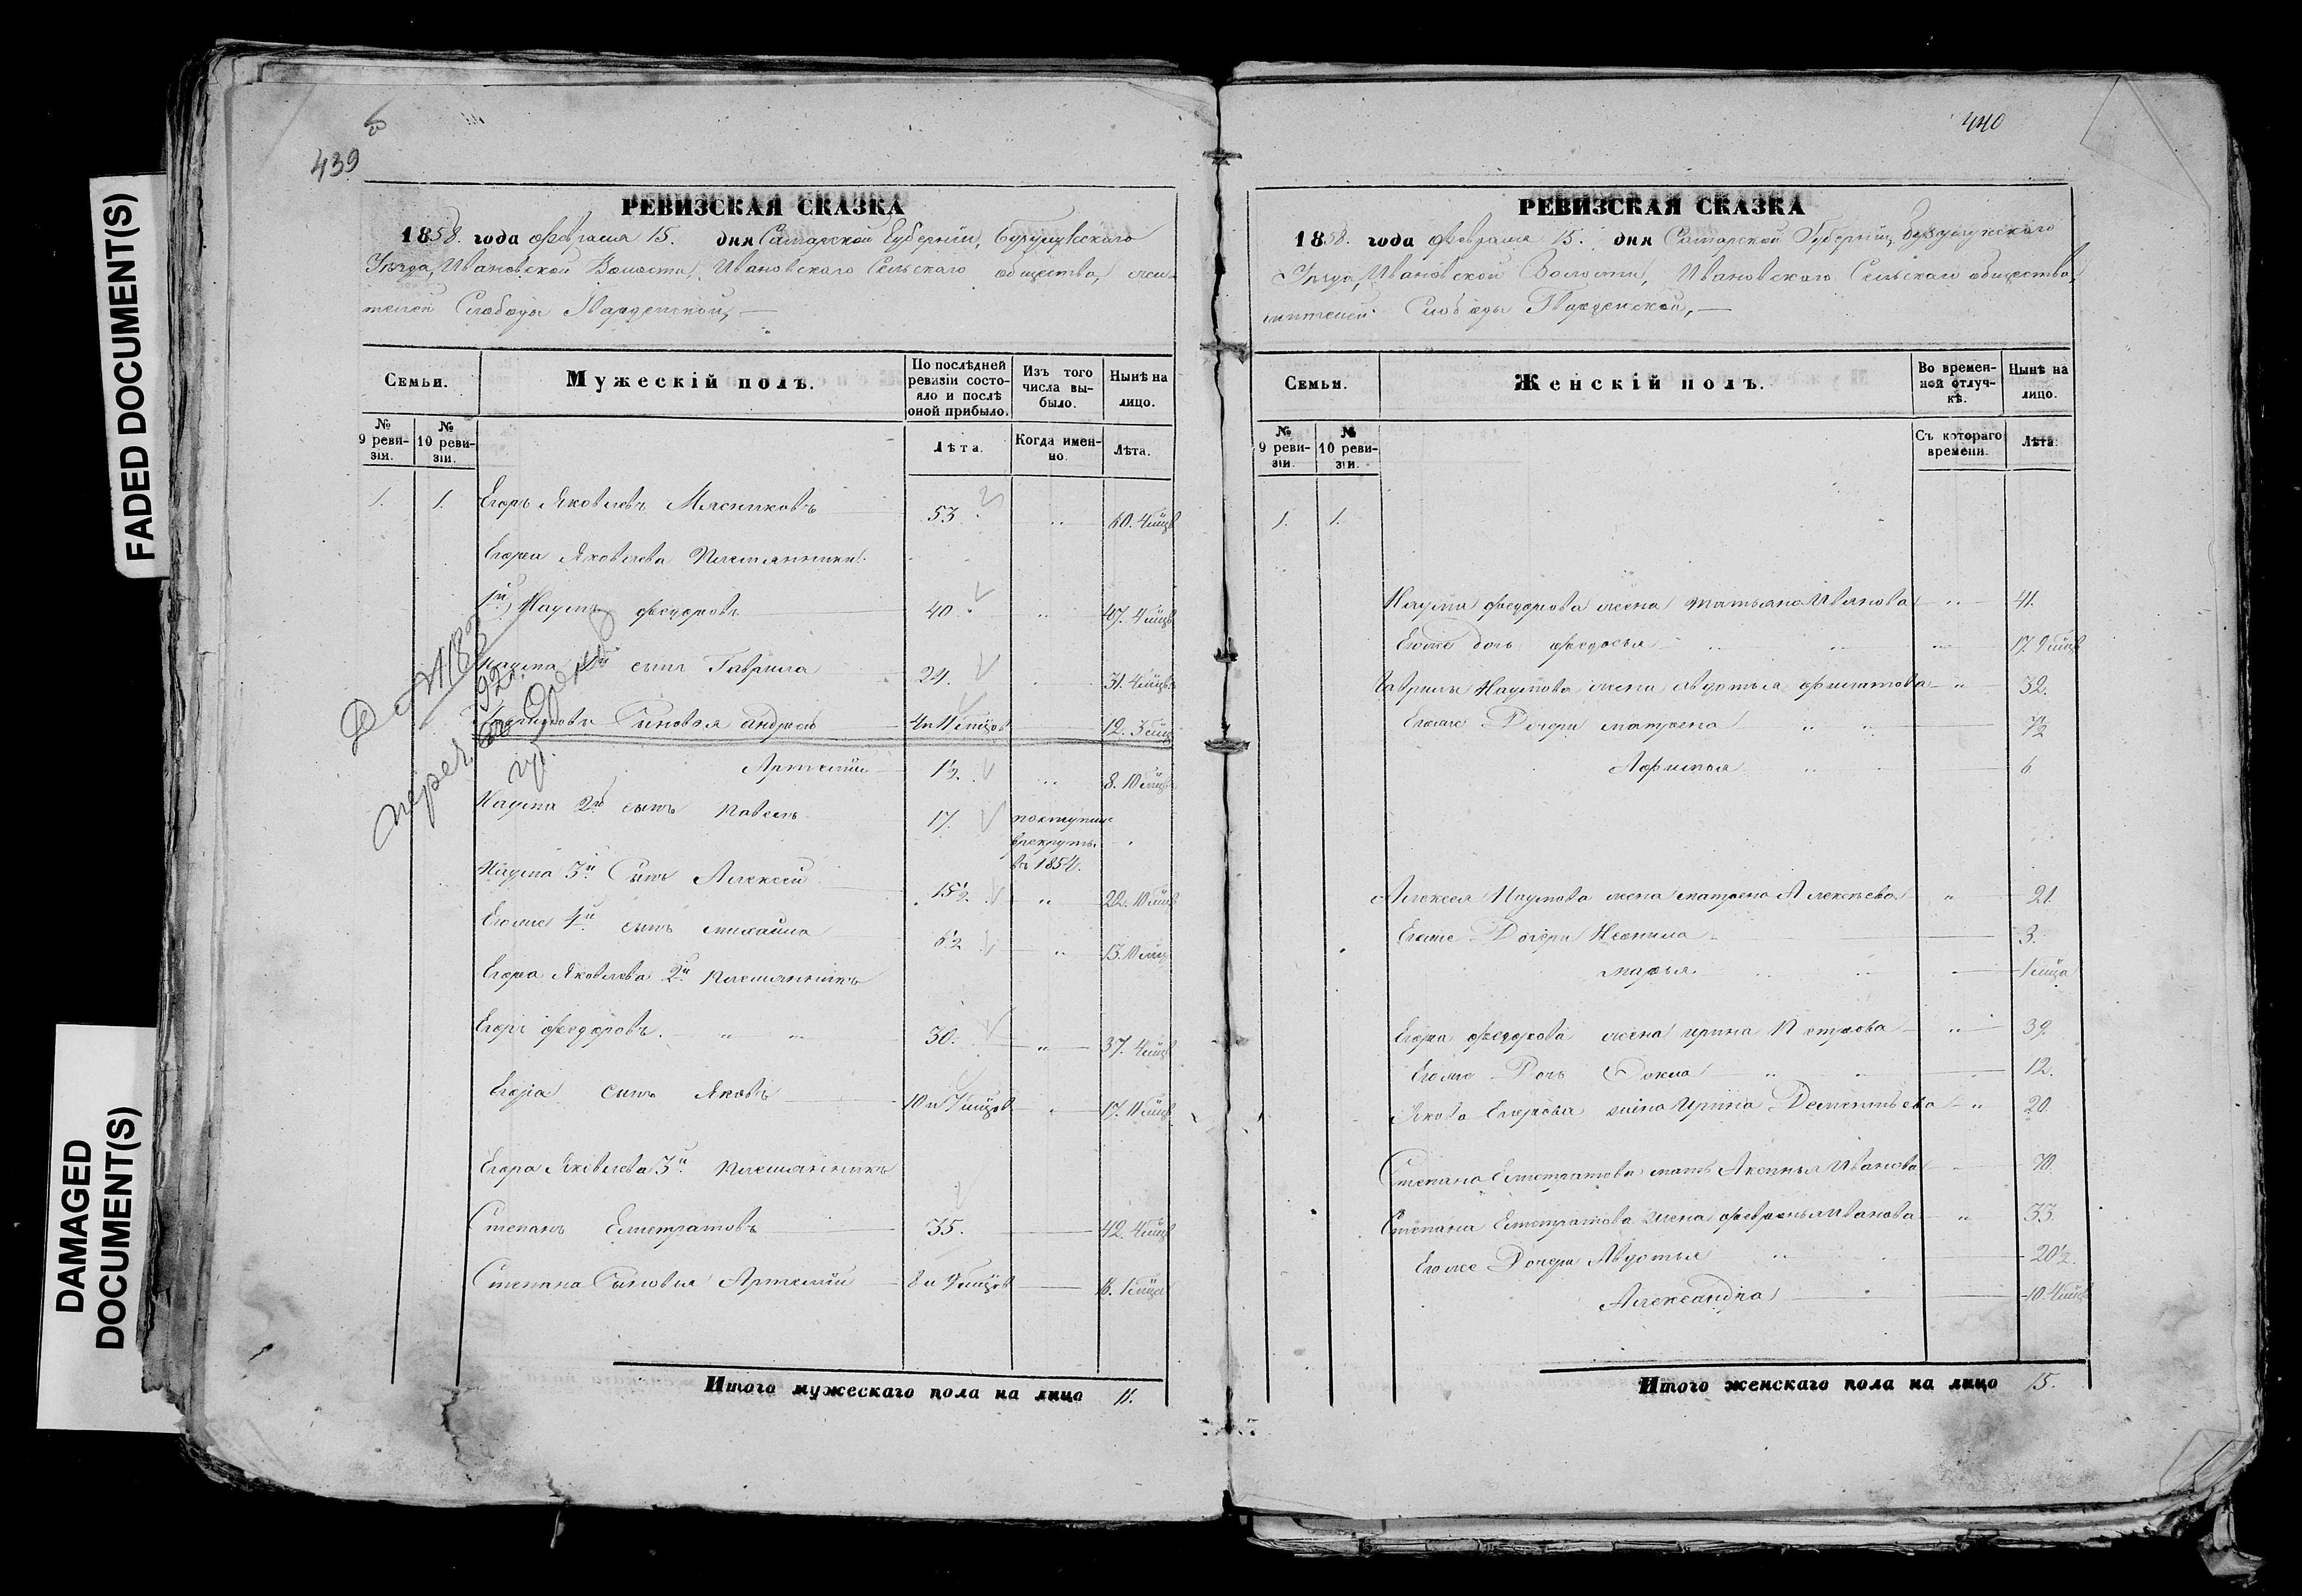 FADED DOCUMENT(S)
DAMAGED
DOCUMENT(S)
439
РЕВИЗСКАЯ СКАЗКА
1858. года февраля 15. дня Самарской Губернии, Бузулукского
Уезда, Ивановской Волости, Ивановского Сельского общества, жи-
телей Слободы Гвардейской,
Семьи.
Мужескій полъ.
По послѣдней ревизіи состо-яло и послѣ оной прибыло.
Изъ того числа вы-было.
Нынѣ на лицо.
№ 9 реви-зіи.
№ 10 реви-зіи.
Лѣта.
Когда имен-но.
Лѣта.
1. 1. Егоръ Яковлевъ Мясниковъ 53. 60. 4 мѣцв
Егора Яковлева Племянники
1й, Наумъ Федоровъ 40. 47. 4 мѣцв
Наума 1й сынъ Гаврила 24. 31. 4 мѣцв
Сыновья Андрей 4 и 11 мѣцов 12. 3 мѣц
Артемій 1½. 8. 10 мѣцв
Наума 2й сынъ Павелъ 17. поступил
врекруты
въ 1854.
Наума 3й Сынъ Алексей 15½. 22. 10 мѣцв
Егоже 4й сынъ Михайла 6½ 13. 10 мѣц
Егора Яковлева 2й племянникъ
Егоръ Федоровъ. 30. 37. 4 мѣцв
Егора сынъ Яковъ 10 и 7 мѣцов 17. 11 мѣцв
Егора Яковлева 3й племянникъ
Степанъ Елистратовъ 35. 42. 4 мѣцв
Степана Сыновья Артемій 8 и 9 мѣцов 16. 1 мѣца
Итого мужескаго пола на лицо 11.
440
РЕВИЗСКАЯ СКАЗКА
1858. года февраля 15. дня Самарской Губернии, Бузулукского
Уезда, Ивановской Волости, Ивановского Сельского общества,
жителей Слободы Гвардейской,
Семьи.
Женскій полъ.
Во времен-ной отлуч-кѣ.
Нынѣ на лицо.
№ 9 реви-зіи.
№ 10 реви-зіи.
Съ котораго времени.
Лѣта.
1. 1.
Наума Федорова жена Татьяна Иванова 41.
Егоже дочь Федосья 17. 9 мѣцв
Гаврилы Наумова жена Авдотья Филатова 32.
Егоже Дочери Матрена 7½
Афимья 6
Алексея Наумова жена Матрена Алексѣева 21.
Егоже Дочери Неонила 3.
Марья. 1 мѣца
Егора Федорова жена Ирина Петрова 39.
Егоже Дочь 12.
Якова Егорова жена Ирина Дементьева 20.
Степана Елистратова мать Аксинья Иванова 70.
Степана Елистратова жена Февронья Иванова 33.
Егоже Дочери Авдотья 20½.
Александра 10. 4 мѣцв
Итого женскаго пола на лицо 15.